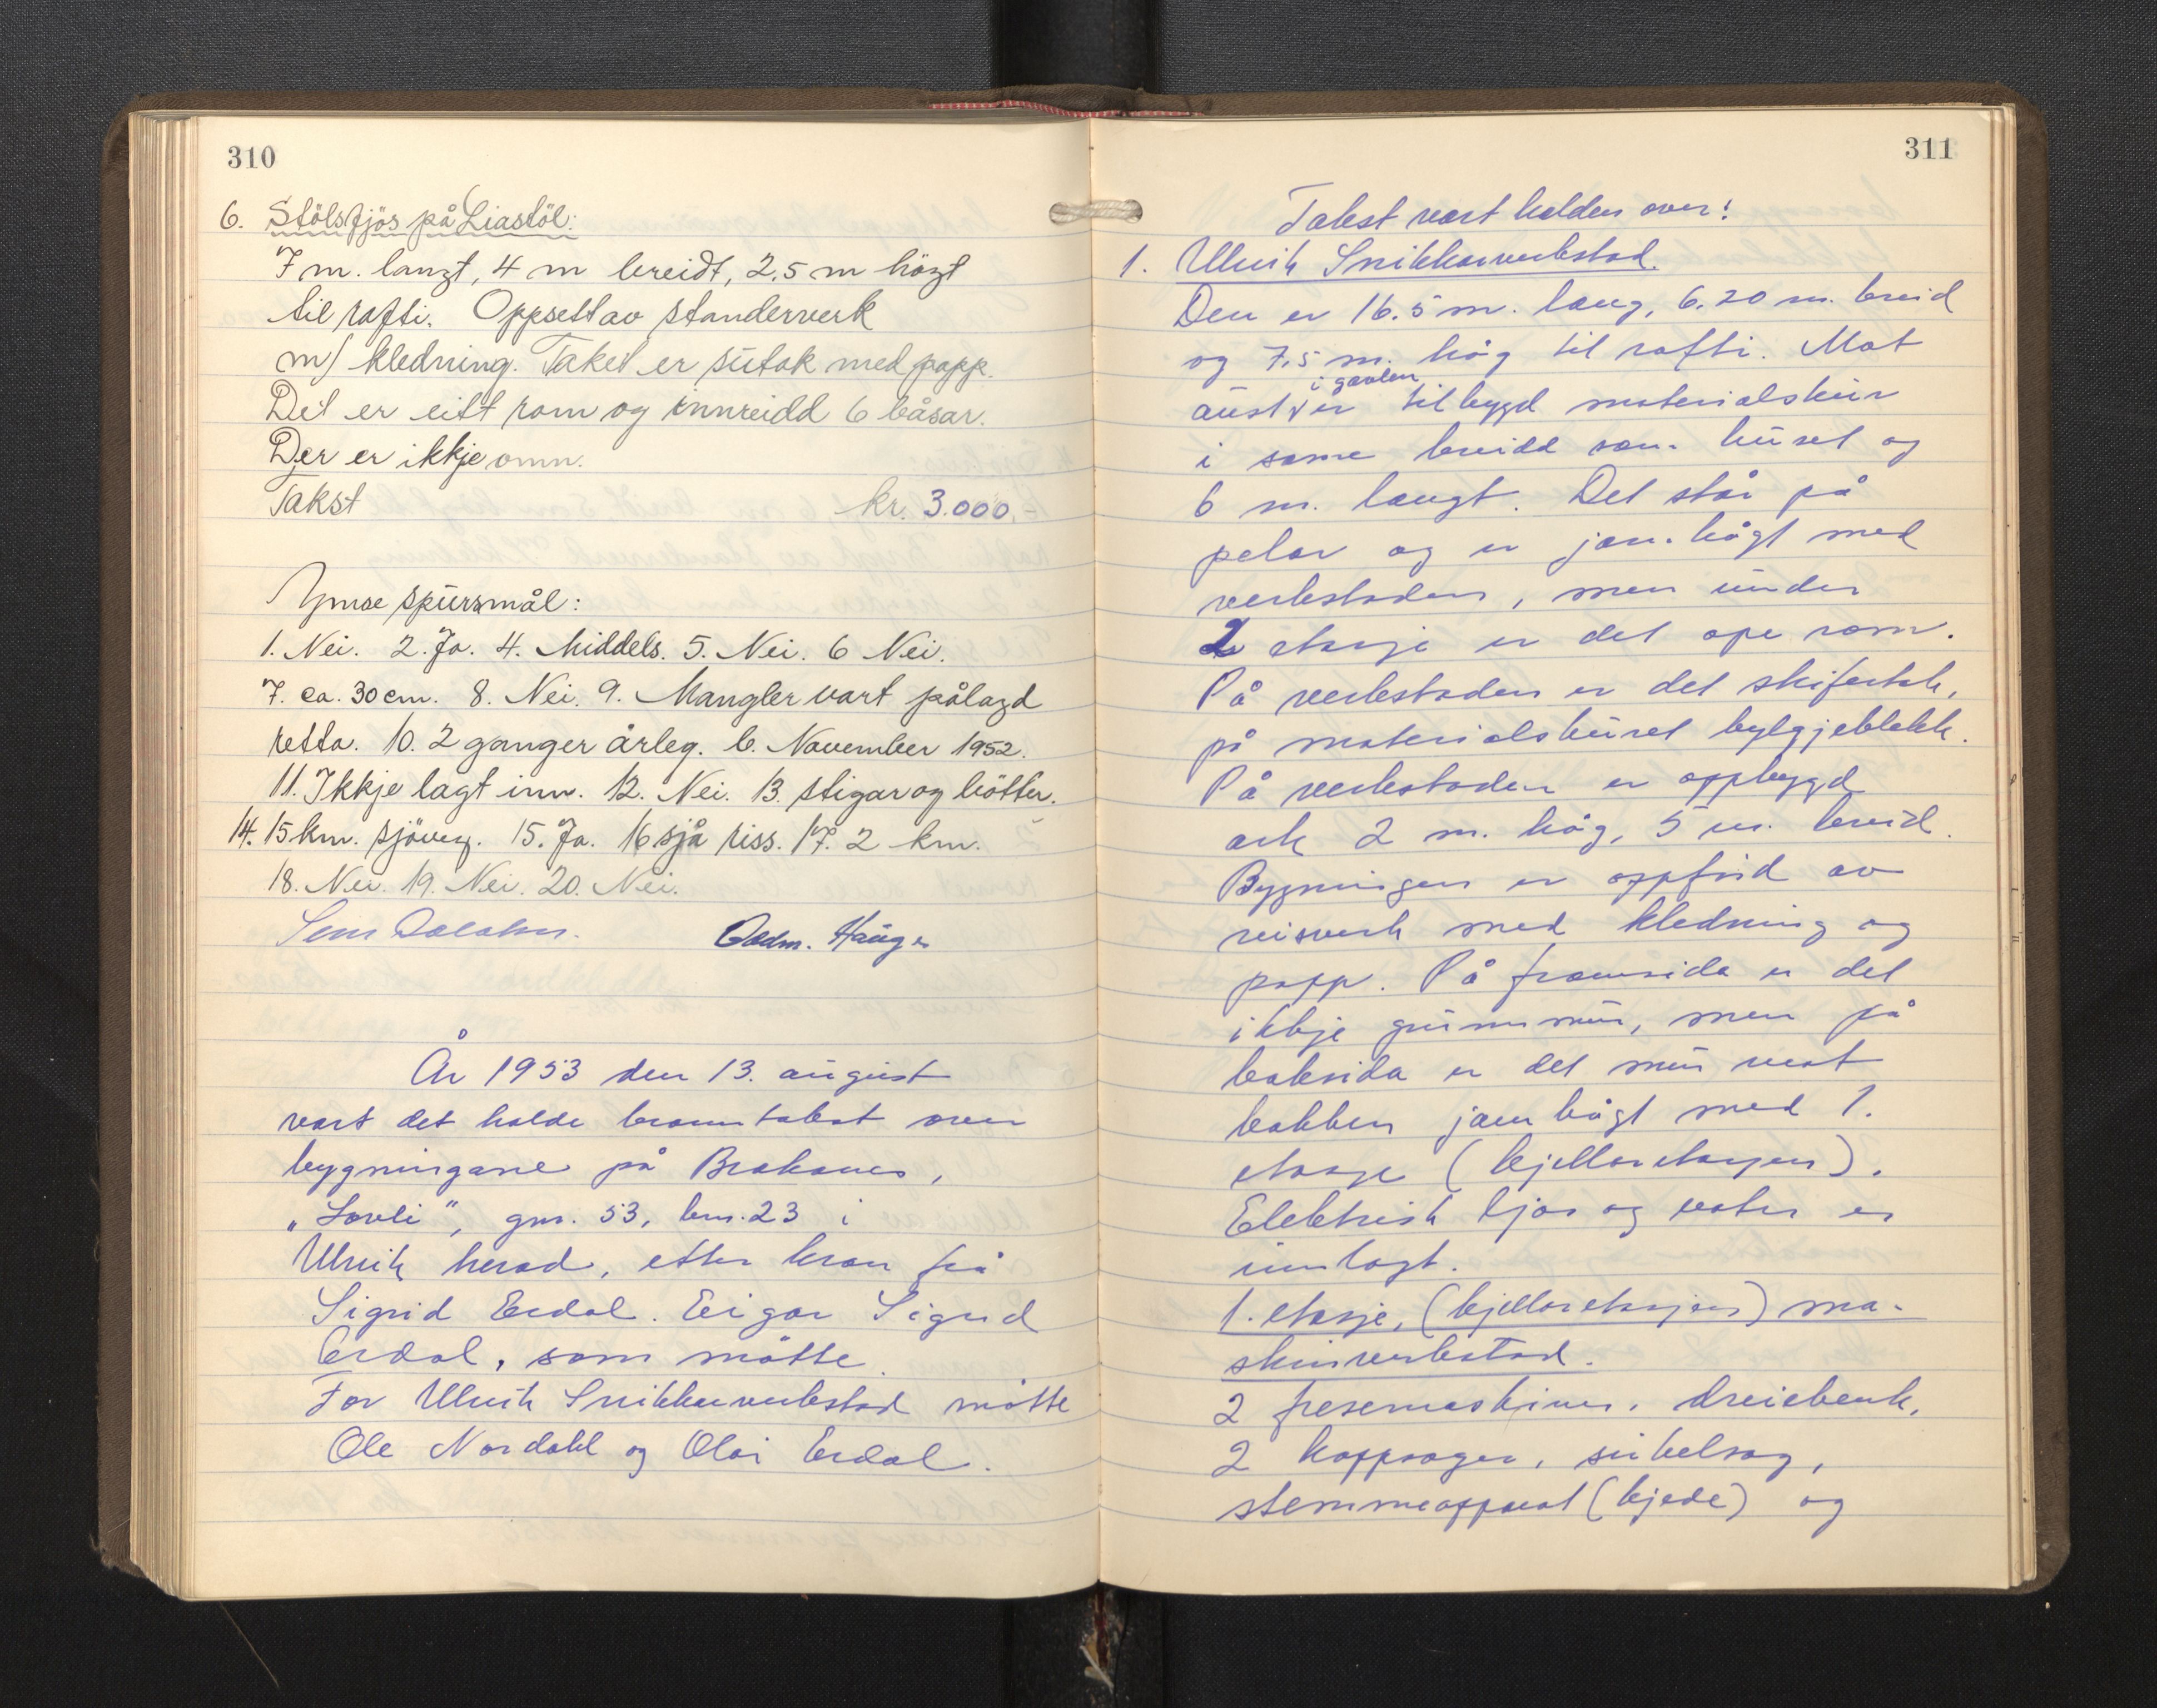 310
6. Stölsfjös på Liastöl:
7 m. langt, 4 m breidt, 2,5 m högt
til rafti. Oppsett av standerverk
m/ kledning. Taket er sutak med papp.
Det er eitt rom og innreidd 6 båsar.
Der er ikkje omn.
Takst kr. 3.000,-
Ymse spursmål:
1. Nei. 2. Ja. 4. Middels. 5. Nei. 6 Nei.
7. ca. 30 cm. 8. Nei. 9. Mangler vart pålagd
retta. 10. 2 ganger årleg. b. November 1952.
11. Ikkje lagt inn. 12. Nei. 13. stigar og bötter.
14. 15 km. sjöveg. 15. Ja. 16 sjå riss. 17. 2 km.
18. Nei. 19. Nei. 20. Nei.
År 1953 den 13. august
vart det halde branntakst over
bygningane på Brakanes,
„Lavli", gnr. 53, bnr. 23 i
Ulvik herad, etter krav frå
Sigrid Erdal. Eigar Sigrid
Erdal, som møtte.
For Ulvik Snikkarverkstad møtte
Ole Nordahl og Olai Erdal.
311
Takst vart halden over:
1. Ulvik Snikkarverkstad.
Den er 16.5 m. lang, 6.20 m. breid
og 7,5 m. høg til rafti. Mot
i gavlen
aust er tilbygd materialskur
i same breidd som huset og
6 m. langt. Det står på
pelar og er jamhøgt med
verkstaden, men under
2 etasje er det ope rom.
På verkstaden er det skifertak,
på materialskuret bylgjeblekk.
På verkstaden er oppbygd
ark 2 m. høg, 5 m. breid.
Bygningen er oppførd av
reisverk med kledning og
papp. På framsida er det
ikkje grunnmur, men på
baksida er det mur mot
bakken jamhøgt med 1.
etasje (kjellaretasjen).
Elektrisk ljos og vatn er
innlagt.
1. etasje, (kjellaretasjen) ma-
skinverkstad.
2 fresemaskiner, dreiebenk,
2 kappsager, sirkelsag,
stemmeapparat (kjede) og